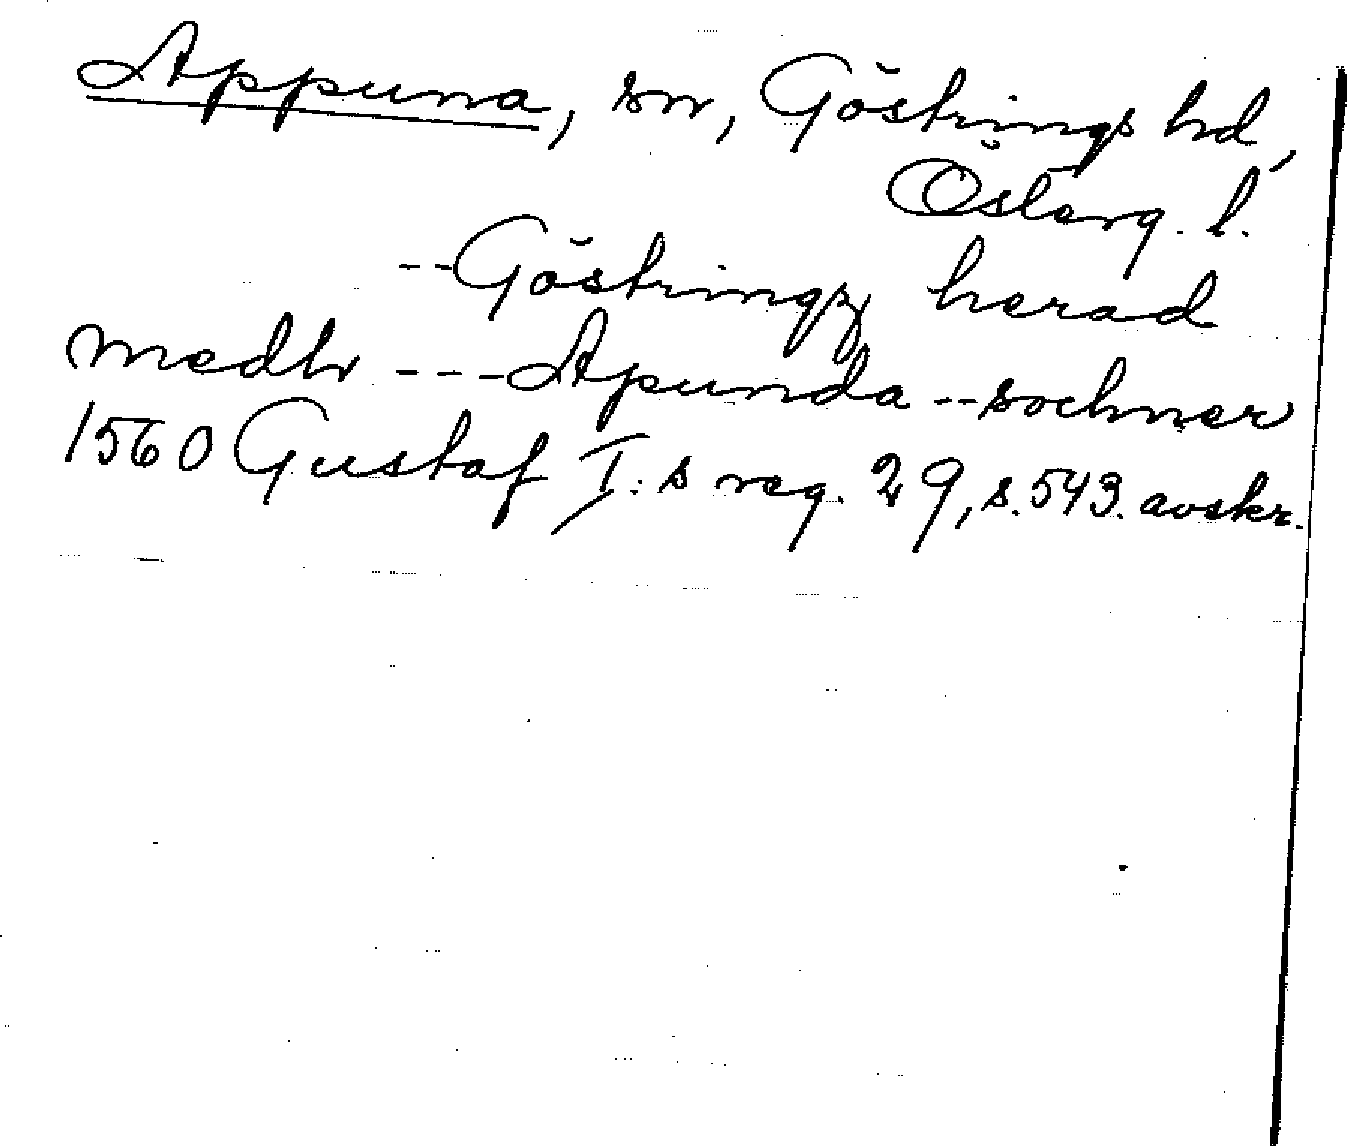 Appuna, sn, Göstrings hd,
Österg. l.
--Göstringz herad
medh ---Apunda--sochner
1560 Gustaf I:s reg. 29, s. 543. avskr.